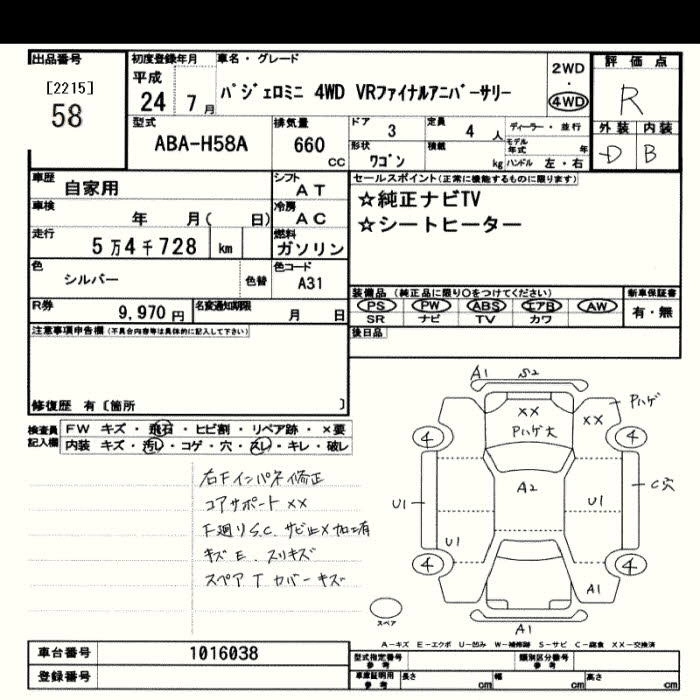 出品番号
[2215]
58
初度登録年月
平成
24 7月
車名・グレード
パジェロミニ 4WD VRファイナルアニバーサリー
2WD
・
4WD
評価点
R
外装 内装
D B
型式
ABA-H58A
排気量
660
CC
ドア
3
定員
4 人
ディーラー・並行
モデル年式 年
形状
ワゴン
積載
kg
ハンドル 左・右
車歴
自家用
シフト
AT
車検
年 月( 日)
冷房
AC
走行
5万4千728 km
燃料
ガソリン
色
シルバー
色替
色コード
A31
R券
9,970円
名変通知期限
月 日
セールスポイント(正常に機能するものに限ります)
☆純正ナビTV
☆シートヒーター
装備品 (純正品に限り〇をつけてください)
PS PW ABS エアB AW
SR ナビ TV カワ
新車保証書
有・無
後日品
注意事項申告欄(不具合内容等は具体的に記入して下さい)
修復歴 有〔箇所 〕
検査員記入欄
FW キズ・飛石・ヒビ割・リペア跡・×要
内装 キズ・汚レ・コゲ・穴・スレ・キレ・破レ
右Fインパネ修正
コアサポート××
下廻りS.C. サビ止メ加工有
キズE. スリキズ
スペアT カバーキズ
A1 S2
××
Pハゲ大
××
Pハゲ
4 4
A2
U1
U1
C穴
U1
4 4
A1
A1
スペア
A-キズ E-エクボ U-凹み W-補修跡 S-サビ C-腐食 XX-交換済
車台番号
1016038
登録番号
型式指定番号
参考
類別区分番号
参考
車庫証明用
参考
長さ cm
幅 cm
高さ cm